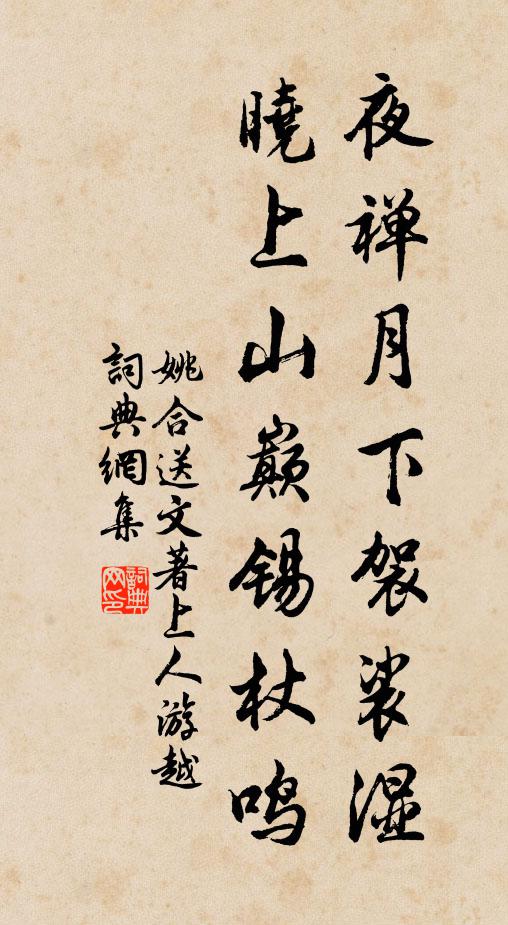 夜禅月下袈裟湿
曉上山巔锡杖鸣
姚合送文著上人游越
詞典網集
詞典网印